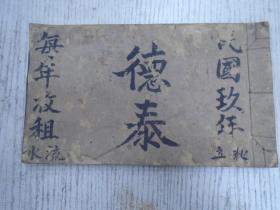 民國玖年
立
德泰
每年收租
流水